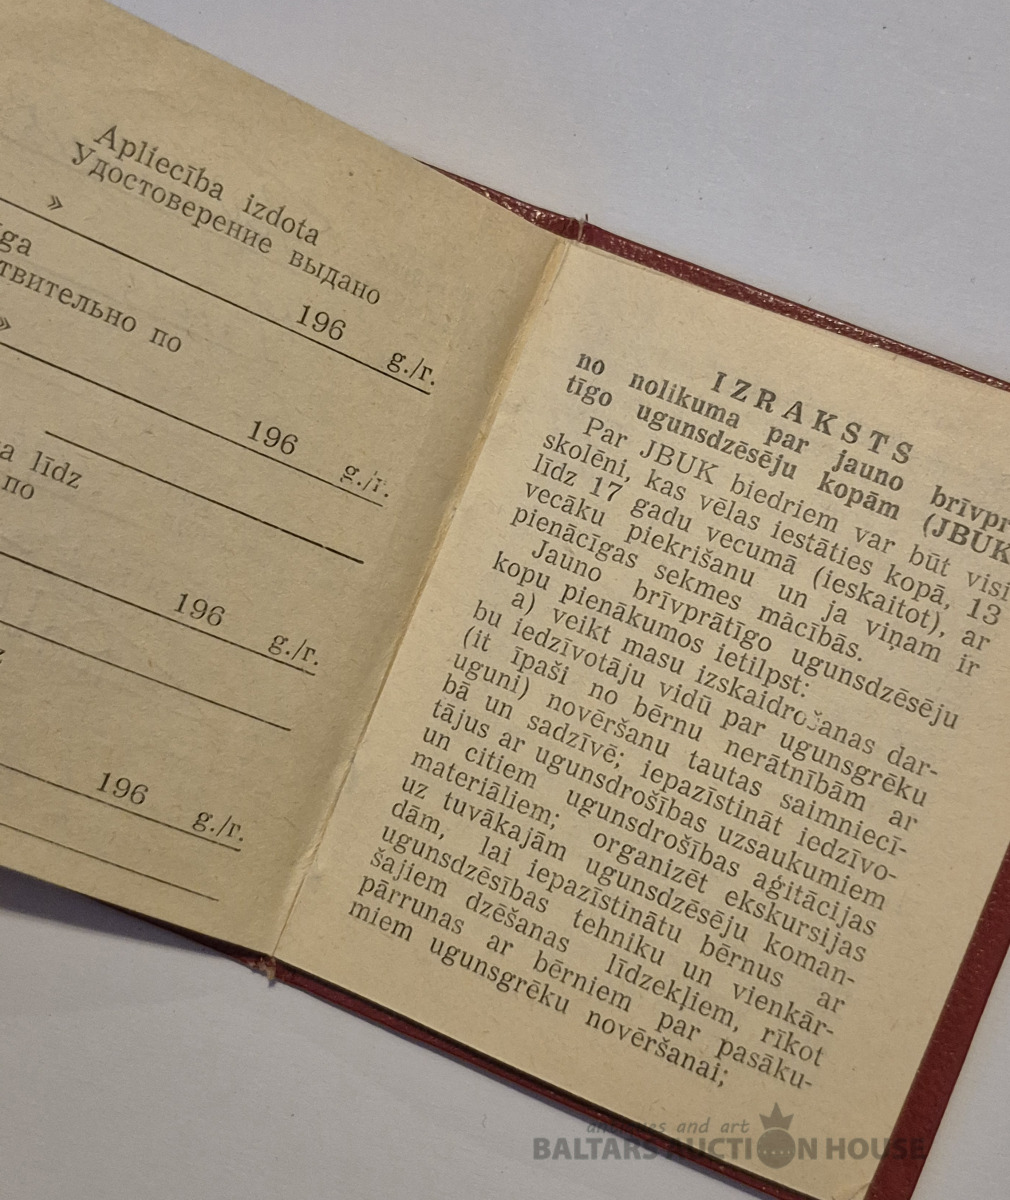 Apliecība izdota
Удостоверение выдано
» 196 g./г.
по
» 196 g./г.
līdz
по
196 g./г.
196 g./г.
IZRAKSTS
no nolikuma par jauno
tīgo ugunsdzēsēju kopām (JBUK
Par JBUK biedriem var būt visi
skolēni, kas vēlas iestāties kopā, 13
līdz 17 gadu vecumā (ieskaitot), ar
vecāku piekrišanu un ja viņam ir
pienācīgas sekmes mācībās.
Jauno brīvprātīgo ugunsdzēsēju
kopu pienākumos ietilpst:
a) veikt masu izskaidrošanas dar-
bu iedzīvotāju vidū par ugunsgrēku
(it īpaši no bērnu nerātnībām ar
uguni) novēršanu tautas saimniecī-
bā un sadzīvē; iepazīstināt iedzīvo-
tājus ar ugunsdrošības uzsaukumiem
un citiem ugunsdrošības aģitācijas
materiāliem; organizēt ekskursijas
uz tuvākajām ugunsdzēsēju koman-
dām, lai iepazīstinātu bērnus ar
ugunsdzēsības tehniku un vienkār-
šajiem dzēšanas līdzekļiem, rīkot
pārrunas ar bērniem par pasāku-
miem ugunsgrēku novēršanai;
antiques and art
BALTARS AUCTION HOUSE